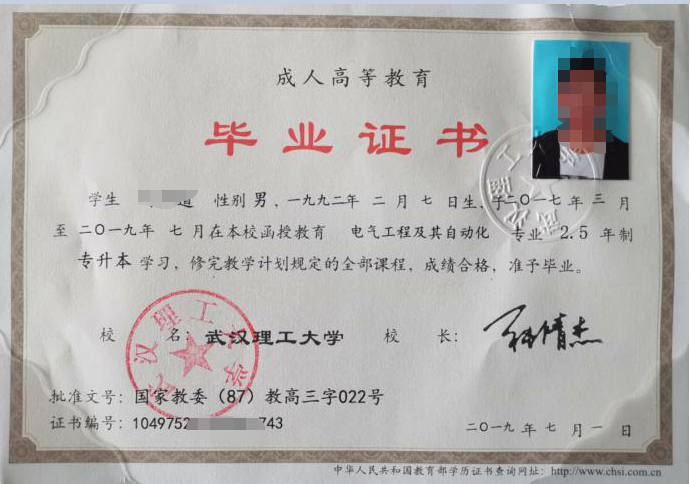 成人高等教育
毕业证书
学生 道 性别 男，一九九二年 二 月 七 日生，于二〇一七年 三 月
至 二〇一九年 七 月在本校函授教育 电气工程及其自动化 专业 2.5 年制
专升本 学习，修完教学计划规定的全部课程，成绩合格，准予毕业。
校 名：武汉理工大学 校 长：
武汉理工大学
批准文号：国家教委（87）教高三字022号
证书编号：1049752 743
二〇一九 年 七 月 一 日
中华人民共和国教育部学历证书查询网址：http://www.chsi.com.cn